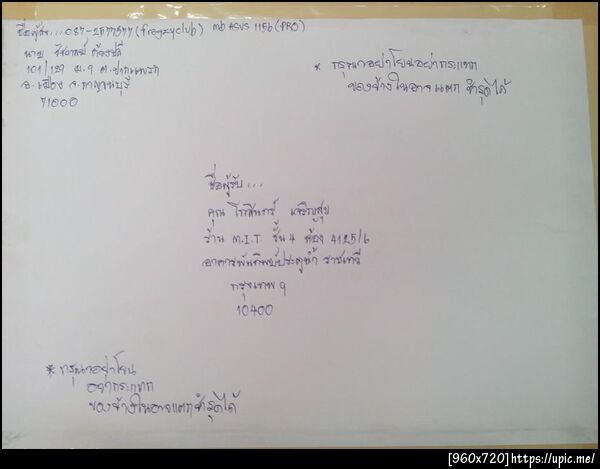 ชื่อผู้ส่ง... (frogzyclub) mb ASUS 1156 (PRO)
นาย
101/127 ม.9 ต.ปากแพรก
อ.เมือง จ.กาญจนบุรี
71000
* กรุณาอย่าโยนอย่ากระแทก
ของข้างในอาจแตกชำรุดได้
ชื่อผู้รับ...
คุณ โกสินทร์ เจริญสุข
ร้าน M.I.T. ชั้น 4 ห้อง 4125/6
อาคารพันทิพย์ประตูน้ำ ราชเทวี
กรุงเทพฯ
10400
* กรุณาอย่าโยน
อย่ากระแทก
ของข้างในอาจแตกชำรุดได้
[960x720]https://upic.me/